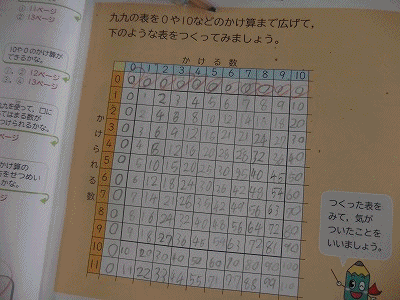 ① 11ページ
② 13ページ
10や0のかけ算が
できるかな。
①、② 12ページ
③、④ 13ページ
九を使って，□に
てはまる数が
つけられるかな。
ページ
かけ算の
をせつめい
かな。
ページ
九九の表を0や10などのかけ算まで広げて，
下のような表をつくってみましょう。
かける数
かけられる数
0 1 2 3 4 5 6 7 8 9 10
0 0 0 0 0 0 0 0 0 0 0 0
1 0 1 2 3 4 5 6 7 8 9 10
2 0
3 0 3 6 9 12 15
4 0 4 8 12 16 20 24 28 32 36 40
5 0 5 10 15 20 25 30 35 40 45 50
6 0 6 12 18 24 30 36 42 48 54 60
7 0 7 14 21 28 35 42 49 56 63 70
8 0 8 16 24 32 40 48 56 64 72 80
9 0 9 18 27 36 45 54 63 72 81 90
10 0 10 20 30 40 50 60 70 80 90 100
11 0 11 22 33 44 55 77 88 99 110
つくった表を
みて，気が
ついたことを
いいましょう。